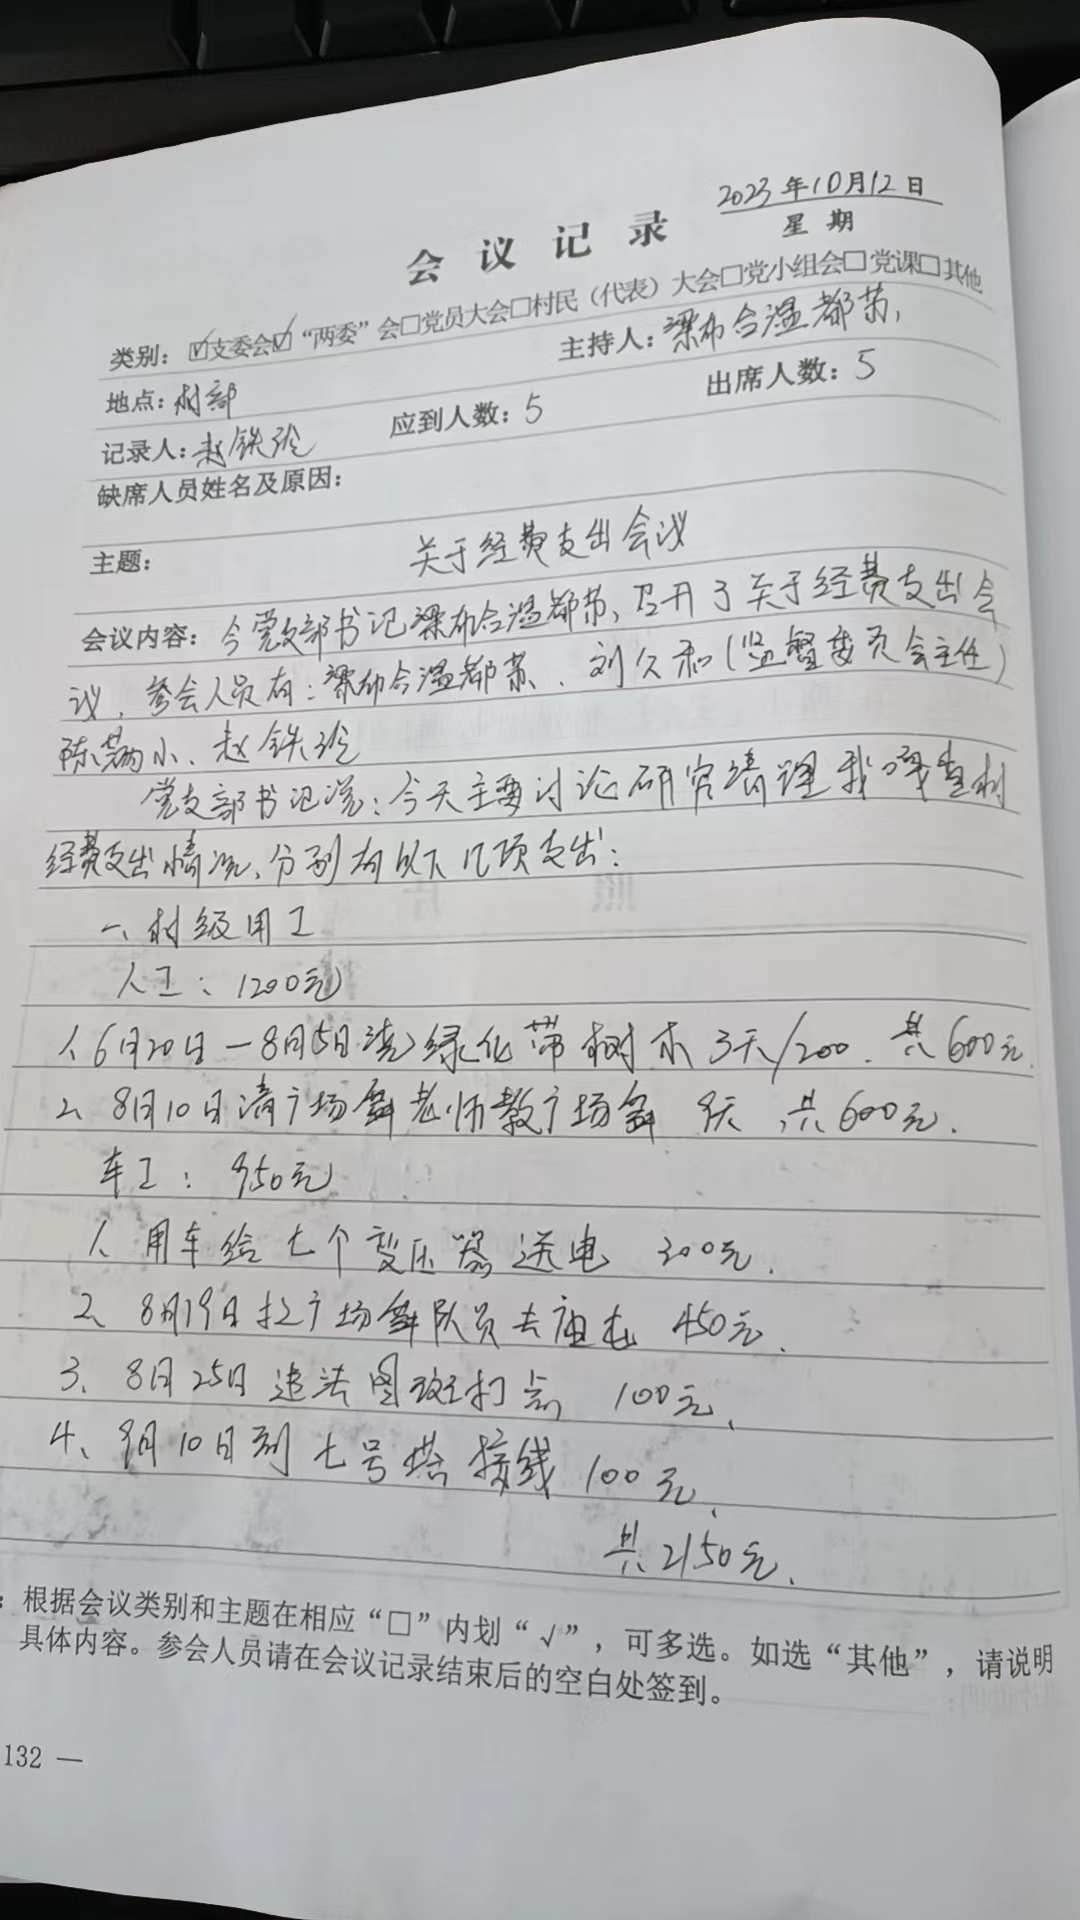 2023年10月12日
星期
会议记录
类别：☑支委会☑“两委”会□党员大会□村民（代表）大会□党小组会□党课□其他
地点：村部 主持人：梁布合温都苏
记录人：赵铁玲 应到人数：5 出席人数：5
缺席人员姓名及原因：
主题： 关于经费支出会议
会议内容：今党支部书记梁布合温都苏、召开了关于经费支出会
议，参会人员有：梁布合温都苏、刘久和（监督委员会主任）
陈 小、赵铁玲
党支部书记说：今天主要讨论研究清理我嘎查村
经费支出情况，分别有以下几项支出：
一、村级用工
人工：1200元
1、6月20日—8月5日浇绿化带树木 3天/200．共600元．
2、8月10日请广场舞老师教广场舞 天，共600元．
车工：950元
1、用车给七个变压器送电 300元．
2、8月19日拉广场舞队员去庙屯 450元．
3、8月25日违法图斑打点 100元、
4、9月10日到七号塔接线 100元、
共2150元．
：根据会议类别和主题在相应“□”内划“√”，可多选。如选“其他”，请说明
具体内容。参会人员请在会议记录结束后的空白处签到。
132 —